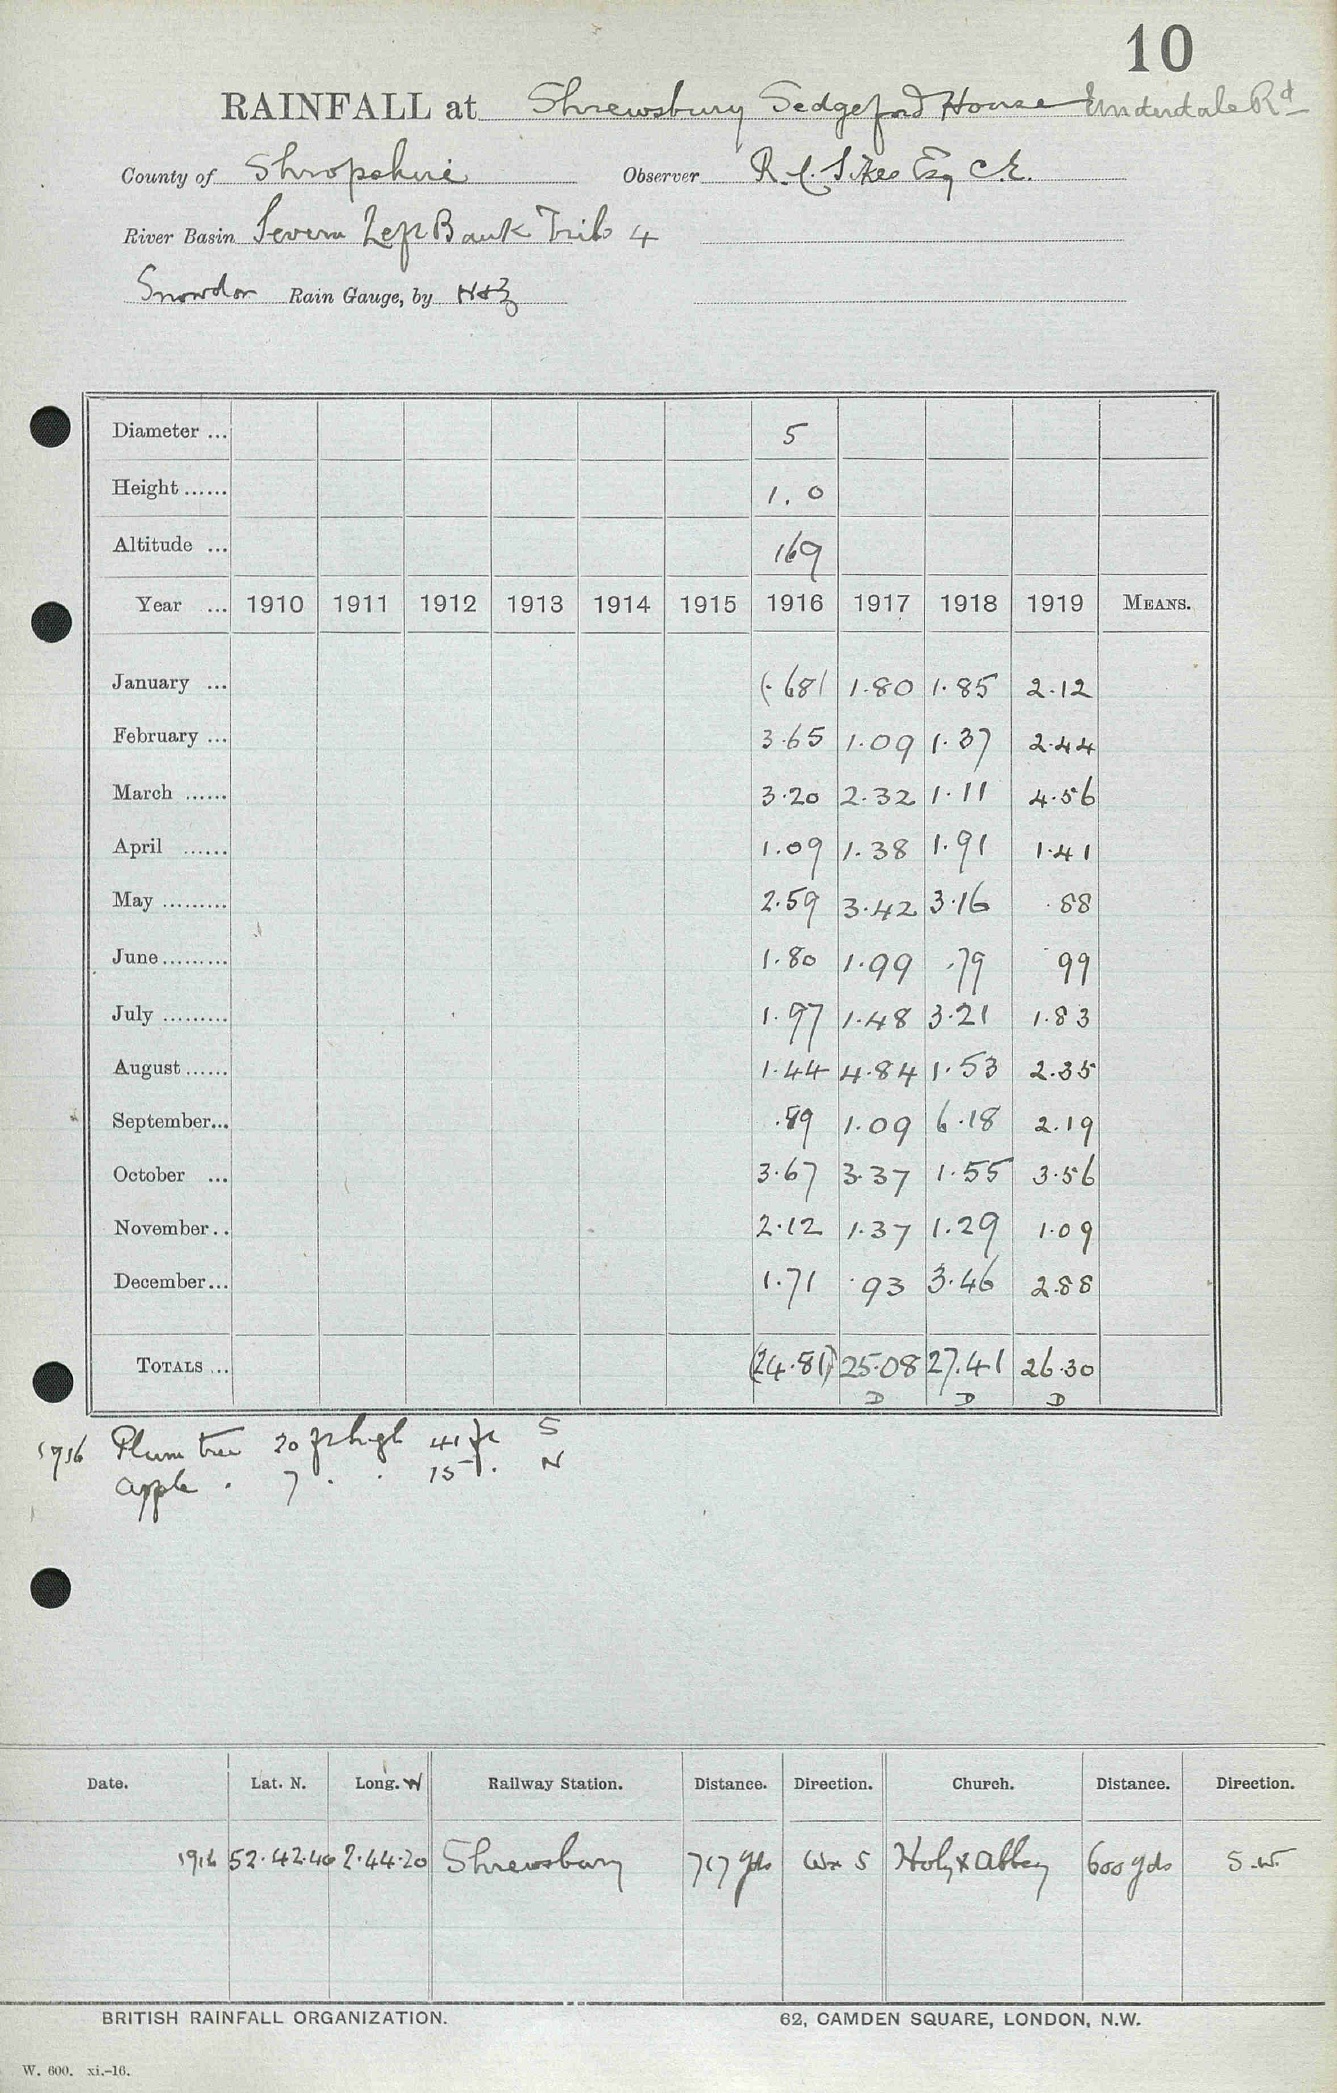 10
RAINFALL at Shrewsbury Sedgeford House Underdale Rd
County of Shropshire Observer R. C. Sikes Esq C.E.
River Basin Severn Left Bank Trib 4
Snowdon Rain Gauge, by N&Z
Diameter ... 5
Height ...... 1.0
Altitude ... 169
Year ... 1910 1911 1912 1913 1914 1915 1916 1917 1918 1919 MEANS.
January ... (.68) 1.80 1.85 2.12
February ... 3.65 1.09 1.37 2.44
March ...... 3.20 2.32 1.11 4.56
April ...... 1.09 1.38 1.91 1.41
May ......... 2.59 3.42 3.16 .88
June ......... 1.80 1.99 .79 .99
July ......... 1.97 1.48 3.21 1.83
August ...... 1.44 4.84 1.53 2.35
September... .89 1.09 6.18 2.19
October ... 3.67 3.37 1.55 3.56
November .. 2.12 1.37 1.29 1.09
December... 1.71 .93 3.46 2.88
TOTALS ... (24.81) 25.08 27.41 26.30
D D D
1916 Plum tree 20 ft high 41 ft S
apple . 7 . . 15 f. N
Date. Lat. N. Long. W Railway Station. Distance. Direction. Church. Distance. Direction.
1916 52.42.40 2.44.20 Shrewsbury 717 yds W x S Holy X Abbey 600 yds S.W.
BRITISH RAINFALL ORGANIZATION. 62, CAMDEN SQUARE, LONDON, N.W.
W. 600. xi.-16.